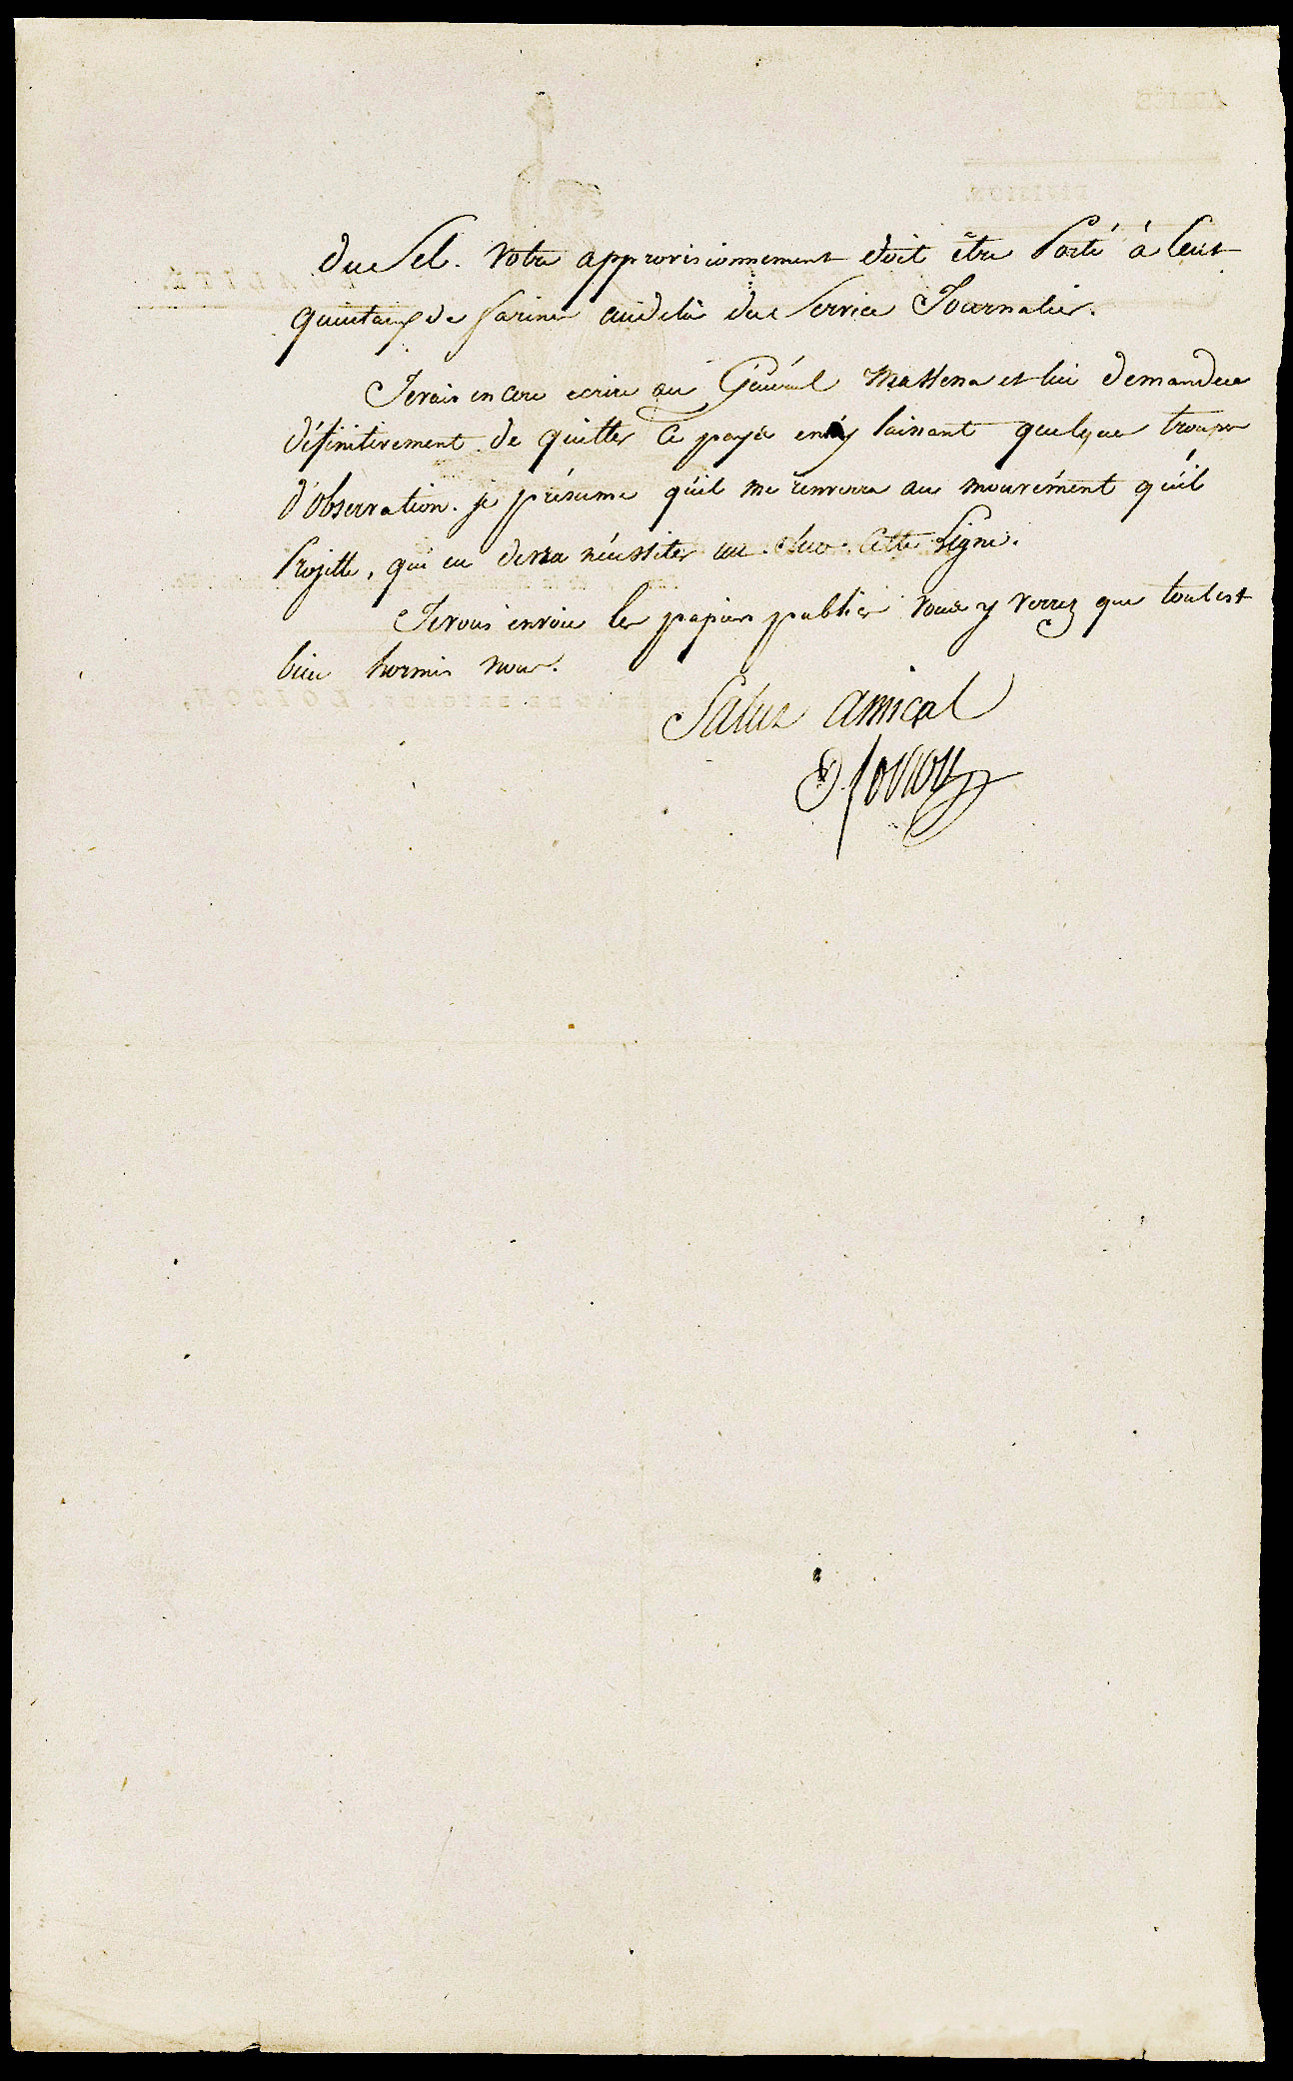 du Sel. Votre approvisionnement doit être Porté à Cent
quintaux de farine audela du Service Journalier.
Je vais encore ecrire au Général Massena et lui demander
définitivement de quitter ce pays en y laissant quelques troupes
d'observation. je présume qu'il me renverra au mouvément qu'il
Projette, qui en devra nécessiter un Sur Cette Ligne.
Je vous envoie les papiers publics vous y verrez que tout est
bien hormis nous.
Salut amical